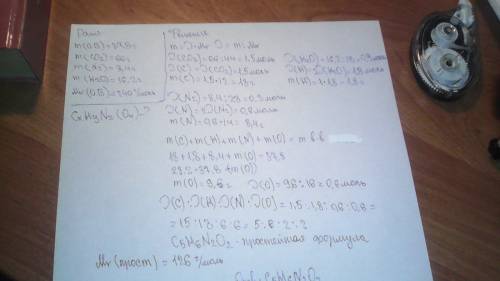 Дано
m(O.B)=37,8г
m(CO2)=66г
m(N2)=8,4г
m(H2O)=16,2г
CxHyNz(Ow)-?
Решение
m=ν·Mr ν=m:Mr
ν(CO2)=66:44=1,5моль
ν(C)=ν(CO2)=1,5моль
m(C)=1,5·12=18г
ν(H2O)=16,2:18=0,9моль
ν(H)=2ν(H2O)=1,8моль
m(H)=1·1,8=1,8г
ν(N2)=8,4:28=0,3моль
ν(N)=2ν(N2)=0,6моль
m(N)=0,6·14=8,4г
m(C)+m(H)+m(N)+m(O)=m в-в
18+1,8+8,4+m(O)=37,8
28,2=37,8 +m(O))
m(O)=9,6г ν(O)=9,6:16=0,6моль
ν(C):ν(H):ν(N):ν(O)=1,5:1,8:0,6:0,6=
=15:18:6:6=5:6:2:2
C5H6N2O2-простейшая формула
Mr(прост)=126г/моль
C5H6N2O2